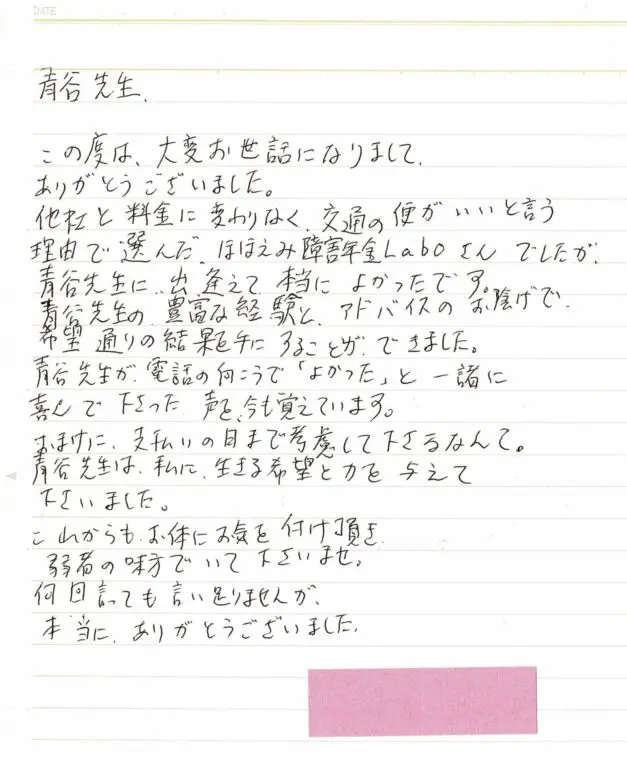 DATE
青谷先生、
この度は、大変お世話になりまして、
ありがとうございました。
他社と料金に変わりなく、交通の便がいいと言う
理由で選んだ、ほほえみ障害年金Laboさんでしたが、
青谷先生に、出逢えて本当によかったです。
青谷先生の、豊富な経験と、アドバイスのお陰げで、
希望通りの結果を手にすることができました。
青谷先生が、電話の向こうで「よかった」と一緒に
喜んで下さった声を、今も覚えています。
おまけに、支払いの日まで考慮して下さるなんて。
青谷先生は、私に、生きる希望と力を与えて
下さいました。
これからも、お体にお気を付け頂き、
弱者の味方でいて下さいませ。
何回言っても言い足りませんが、
本当に、ありがとうございました。